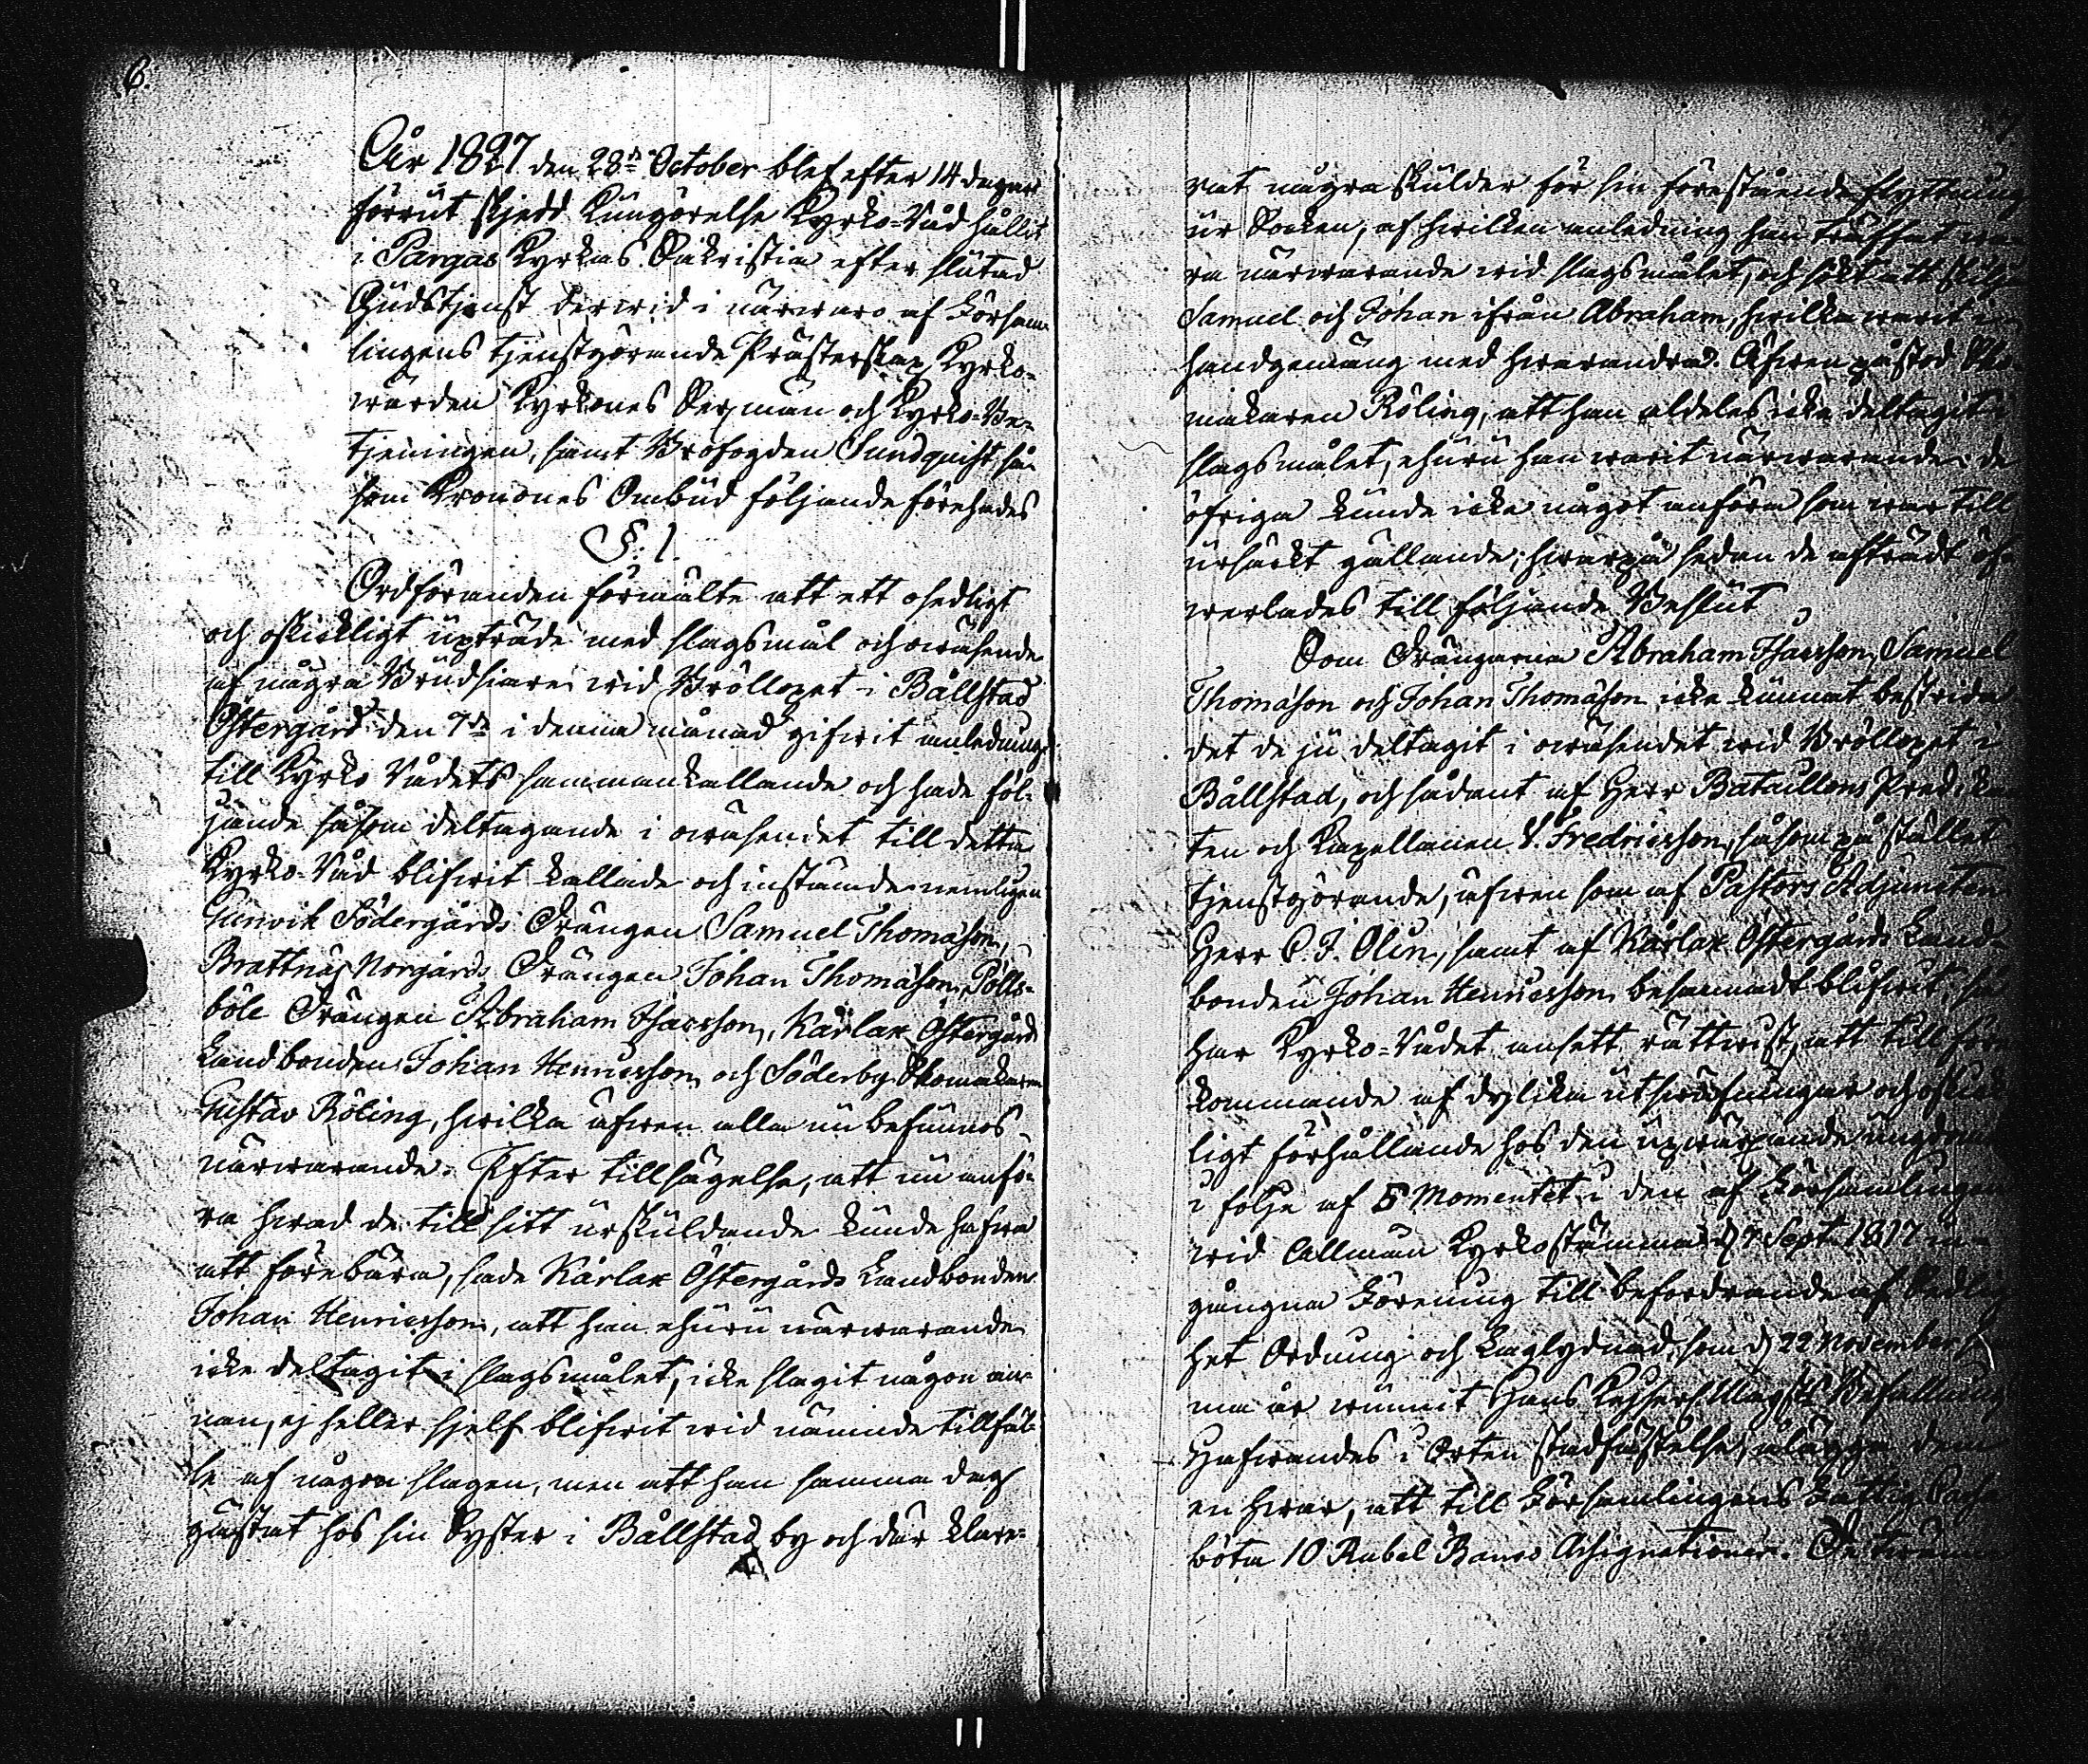 6.
År 1827 den 28de October blef efter 14 dagar
förrut skjedd Kungörelse Kyrko-Råd hållit
i Pargas Kyrkas Sakristia efter slutad
Gudstjenst derwid i närwaro af Försam-
lingens tjenstgörande Prästerskap, Kyrko-
wärden Kyrkones Sexmän och Kyrko-Be-
tjeningen, samt Brofogden Sundqvist så-
som Kronones Ombud följande förehades
§. 1.
Ordföranden förmälte att ett osedligt
och oskickligt uppträde med slagsmål och owäsende
af några Brudsware wid Bröllopet i Bållstad
Östergård den 7de i denna månad gifwit anledning
till Kyrko Rådets sammankallande och hade föl-
jande såsom deltagande i owäsendet till detta
Kyrko-Råd blifwit kallade och instämde nemligen
Gunvik Södergårds Drängen Samuel Thomasson,
Brattnäs Norgårds Drängen Johan Thomasson, Pölls-
böle Drängen Abraham Isacsson, Kårlax Östergårds
Landbonden Johan Henricsson och Söderby Skomakaren
Gustav Röling, hwilka äfwen alla nu befunnos
närwarande. Efter tillsägelse, att nu anfö-
ra hwad de till sitt urskuldande kunde hafwa
att förebära, sade Kårlax Östergårds Landbonden
Johan Henricsson, att han ehuru närwarande
icke deltagit i slagsmålet, icke slagit någon an-
nan, ej heller sjelf blifwit wid nämnde tillfäl-
le af någon slagen, men att han samma dag
gästat hos sin Syster i Bållstad by och där klare-
rat några skulder för sin förestående flyttning
ur Socken, af hwilken anledning han träffat wa-
ra närwarande wid slagsmålet, och sökt att skilja
Samuel och Johan ifrån Abraham, hwilka warit i
handgemäng med hwarandra. Äfwen påstod Sko-
makaren Röling, att han aldeles icke deltagit i
slagsmålet, ehuru han warit närwarande: de
öfriga kunde icke något anföra som war till
ursäkt gällande; hwarpå sedan de afträdt öf-
werlades till följande Beslut
Som Drängarna Abraham Isacsson, Samuel
Thomasson och Johan Thomasson icke kunnat bestrida
det de ju deltagit i owäsendet wid Bröllopet i
Bållstad, och sådant af Herr Bataillons Predikan-
ten och Kapellanen V. Fredricsson, såsom på stället
tjenstgörande, äfwen som af Pastors Adjuncten
Herr C. J. Olin, samt af Kårlax Östergårds Land-
bonden Johan Henricsson besannadt blifwit, så
har Kyrko-Rådet ansett rättwist, att till före-
kommande af dylika utswäfningar och oskick-
ligt förhållande hos den uppwäxande ungdomen
i följe af 5 Momentet i den af Församlingen
wid Allmän Kyrkostämma d. 7 Sept. 1817 in-
gångna Förening till befordrande af Sedlig-
het Ordning och Laglydnad, som d. 22 November sam-
ma år wunnit Hans Kejserl. Maj:ts Befallning
Hafwandes i Orten stadfästelse, ålägga dem
en hwar, att till Församlingens Fattig Cassa
böta 10 Rubel Banco Assignationer.